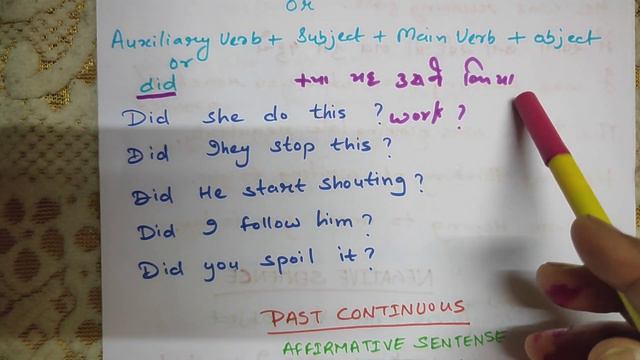 or
Auxiliary Verb + Subject + Main Verb + object
or
did क्या यह उसने किया
Did she do this ? work ?
Did They stop this ?
Did He start shouting ?
Did I follow him ?
Did you spoil it ?
PAST CONTINUOUS
AFFIRMATIVE SENTENSE